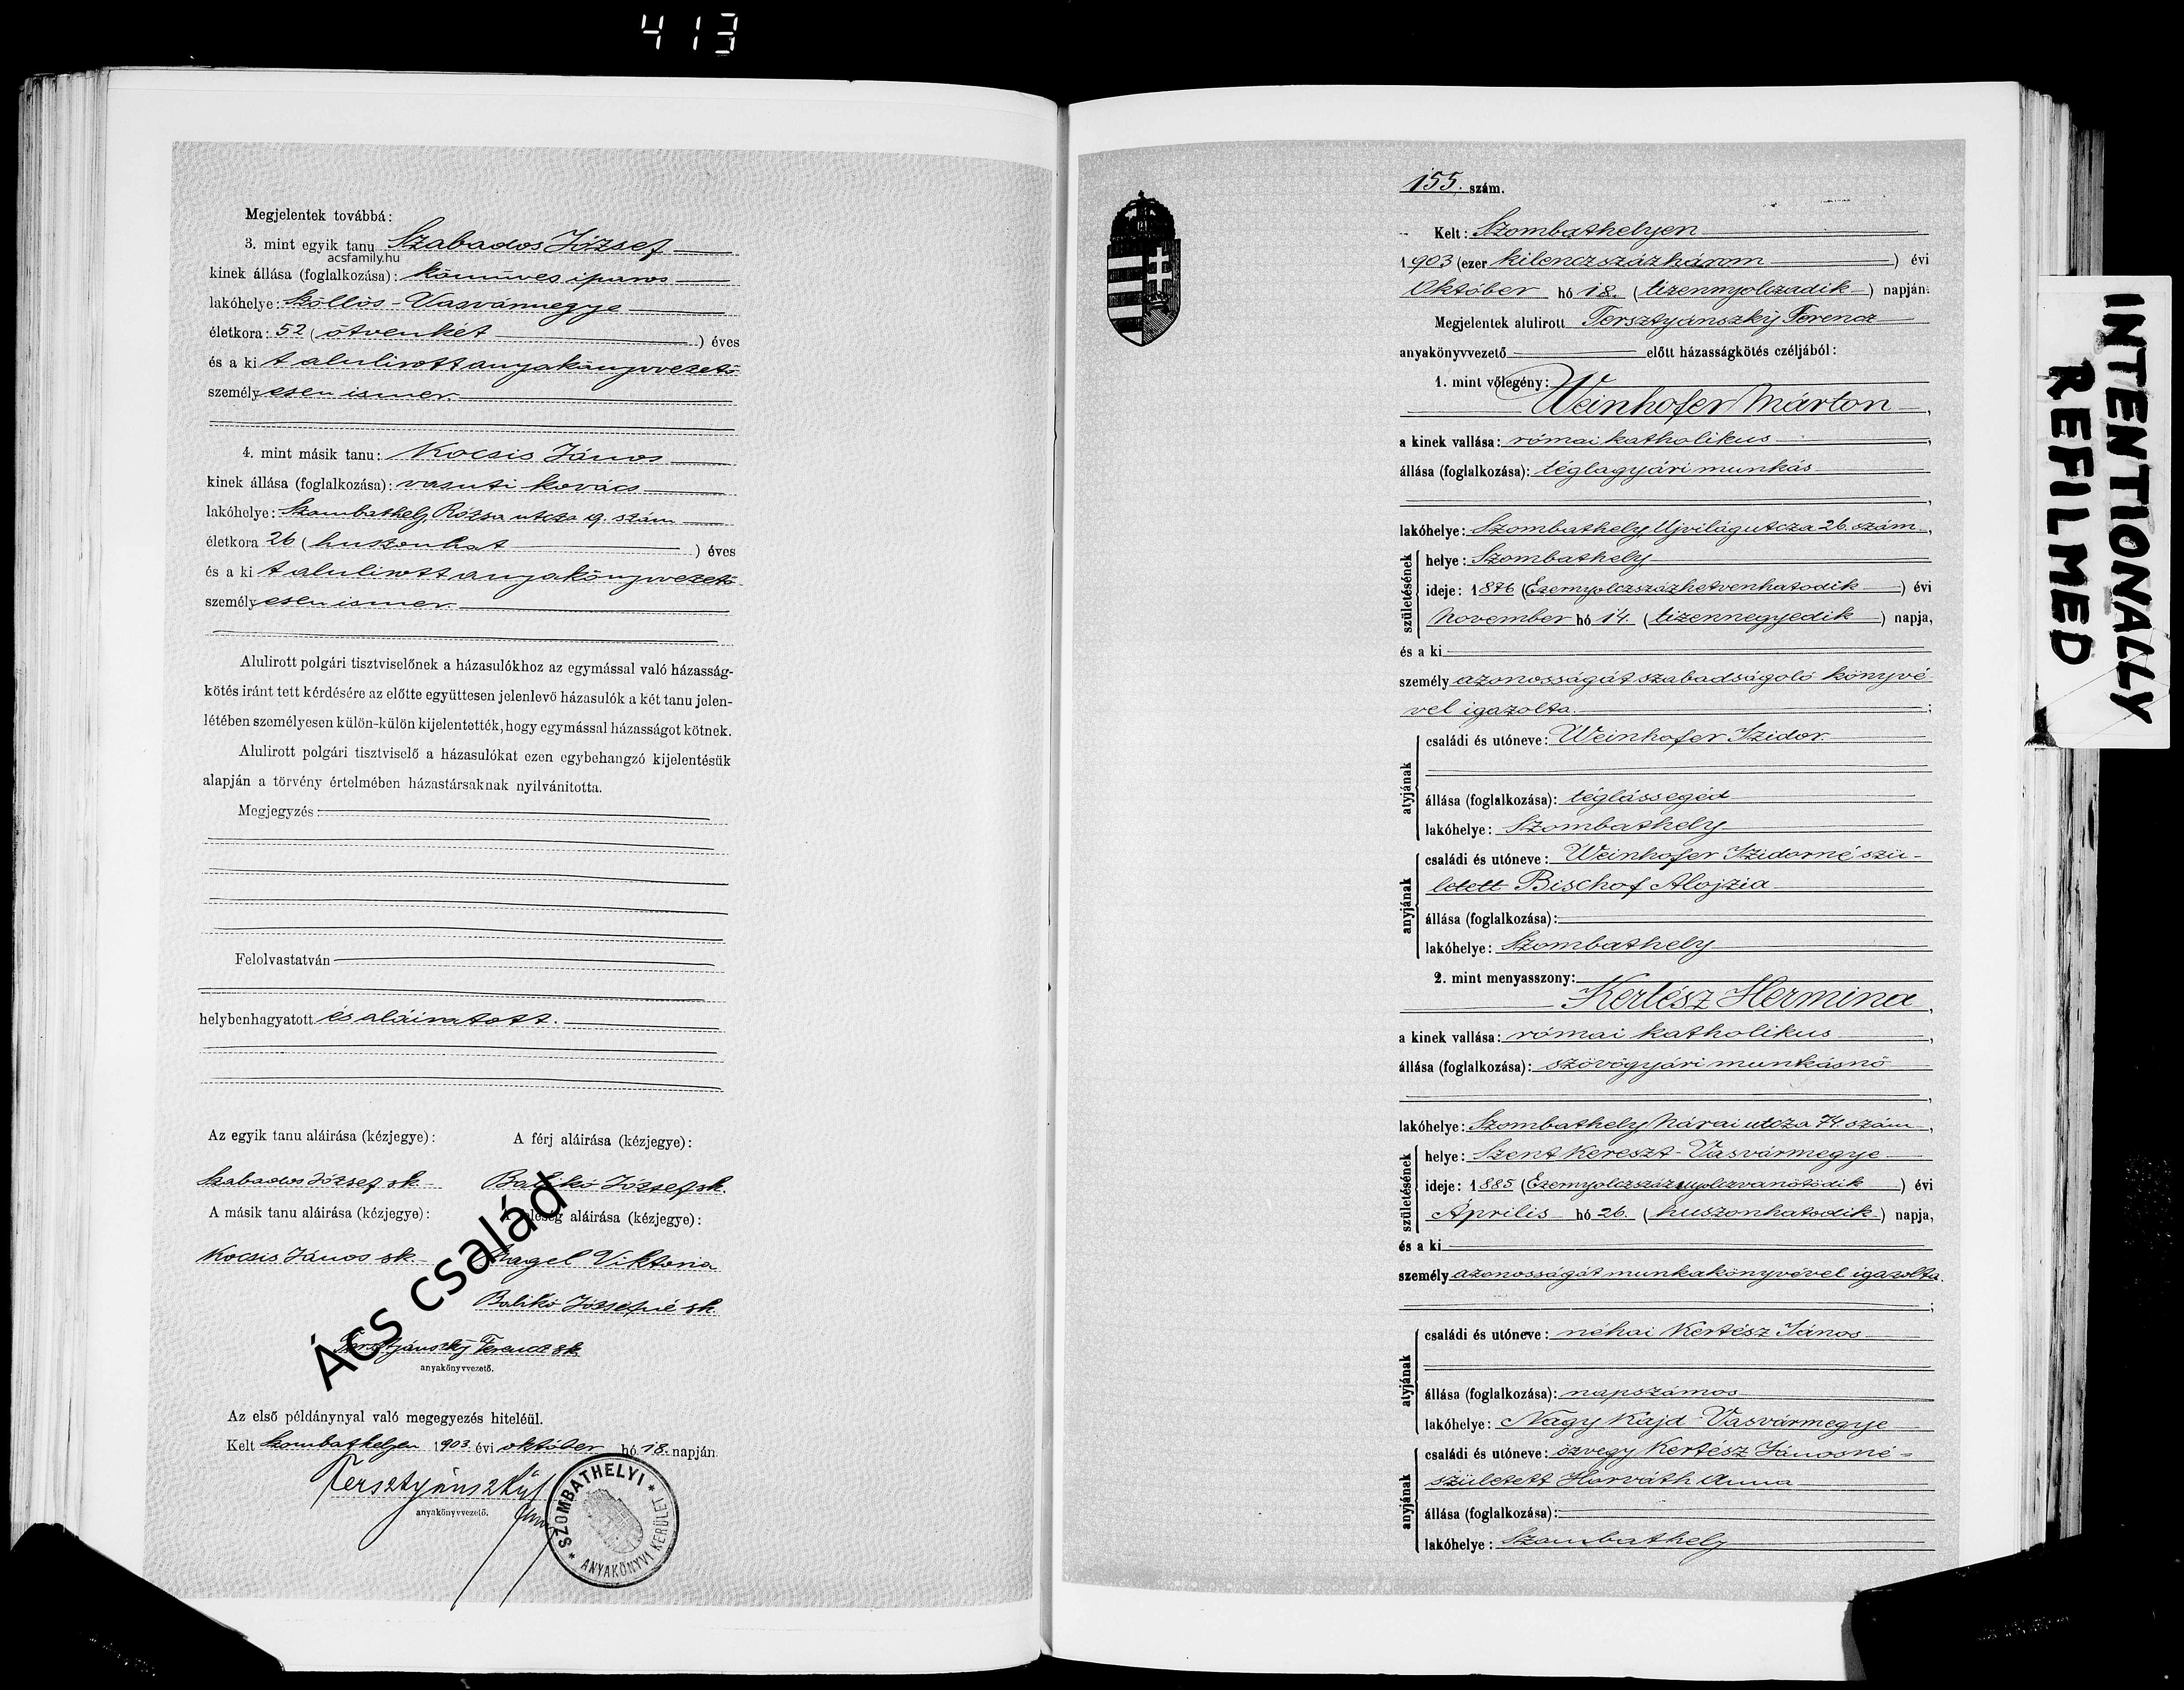 413
Megjelentek továbbá:
3. mint egyik tanu Szabados József
acsfamily.hu
kinek állása (foglalkozása): kőműves iparos
lakóhelye: Szőllős - Vasvármegye
életkora: 52 (ötvenkét) éves
és a ki t alulirott anyakönyvvezető
személyesen ismer.
4. mint másik tanu: Kocsis János
kinek állása (foglalkozása): vasuti kovács
lakóhelye: Szombathely, Rózsa utcza 19. szám
életkora 26 (huszonhat) éves
és a ki t alulirott anyakönyvvezető
személyesen ismer.
Alulirott polgári tisztviselőnek a házasulókhoz az egymással való házasság-
kötés iránt tett kérdésére az előtte együttesen jelenlevő házasulók a két tanu jelen-
létében személyesen külön-külön kijelentették, hogy egymással házasságot kötnek.
Alulirott polgári tisztviselő a házasulókat ezen egybehangzó kijelentésük
alapján a törvény értelmében házastársaknak nyilvánitotta.
Megjegyzés:
Felolvastatván
helybenhagyatott és aláiratott.
Az egyik tanu aláirása (kézjegye):
A férj aláirása (kézjegye):
Szabados József sk.
Balikó József sk.
A másik tanu aláirása (kézjegye):
A feleség aláirása (kézjegye):
Kocsis János sk.
Nagel Viktoria
Balikó Józsefné sk.
Ács család
Tersztyánszky Ferencz sk.
anyakönyvvezető.
Az első példánynyal való megegyezés hiteléül.
Kelt Szombathelyen 1903. évi október hó 18. napján.
Tersztyánszky
anyakönyvvezető.
* SZOMBATHELYI * ANYAKÖNYVI KERÜLET
155. szám.
Kelt: Szombathelyen
1903 (ezer kilenczszázhárom) évi
Október hó 18. (tizennyolczadik) napján.
Megjelentek alulirott Tersztyánszky Ferencz
anyakönyvvezető előtt házasságkötés czéljából:
1. mint vőlegény:
Weinhofer Márton,
a kinek vallása: római katholikus,
állása (foglalkozása): téglagyári munkás
lakóhelye: Szombathely, Ujvilág utcza 26. szám,
születésének
helye: Szombathely
ideje: 1876 (Ezernyolczszázhetvenhatodik) évi
November hó 14. (tizennegyedik) napja,
és a ki
személy azonosságát szabadságoló könyvé-
vel igazolta.;
atyjának
családi és utóneve: Weinhofer Izidor.
állása (foglalkozása): téglássegéd
lakóhelye: Szombathely
anyjának
családi és utóneve: Weinhofer Izidorné szü-
letett Bischof Alojzia
állása (foglalkozása):
lakóhelye: Szombathely
2. mint menyasszony:
Kertész Hermina,
a kinek vallása: római katholikus,
állása (foglalkozása): szövőgyári munkásnő
lakóhelye: Szombathely Nárai utcza 74. szám,
születésének
helye: Szent Kereszt - Vasvármegye
ideje: 1885 (Ezernyolczsáznyolczvanötödik) évi
Április hó 26. (huszonhatodik) napja,
és a ki
személy azonosságát munkakönyvével igazolta.
;
atyjának
családi és utóneve: néhai Kertész János
állása (foglalkozása): napszámos
lakóhelye: Nagy Kajd - Vasvármegye
anyjának
családi és utóneve: özvegy Kertész Jánosné -
született Horváth Anna
állása (foglalkozása):
lakóhelye: Szombathely
INTENTIONALLY
REFILMED